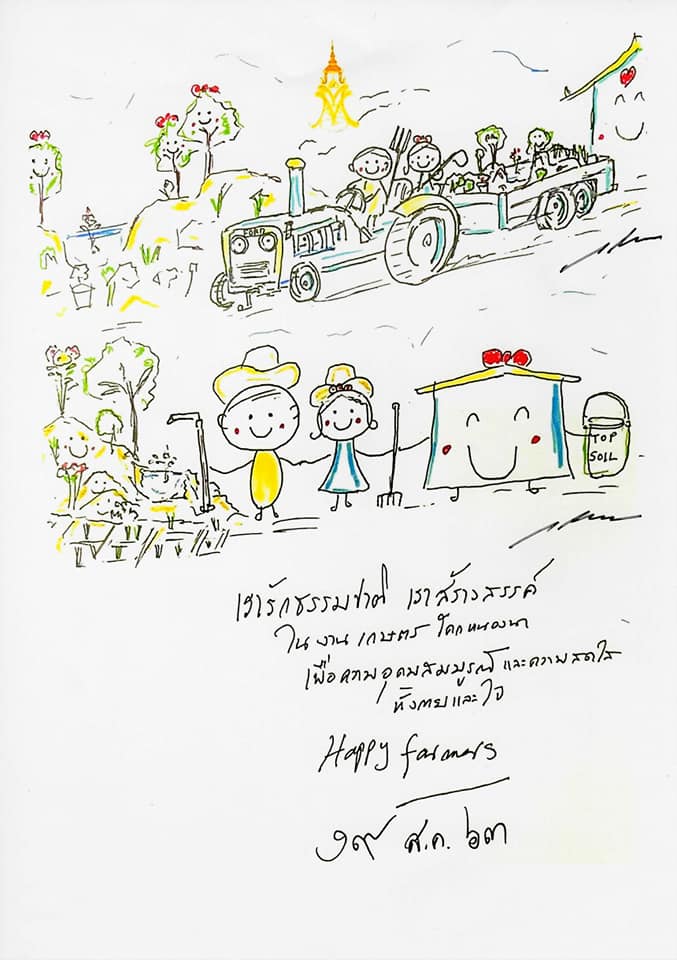 FORD
TOP
SOIL
เรารักธรรมชาติ เราสร้างสรรค์
ใน งาน เกษตร โคกหนองนา
เพื่อความอุดมสมบูรณ์ และความสดใส
ทั้งกายและใจ
Happy farmers
๑๙ ส.ค. ๖๓